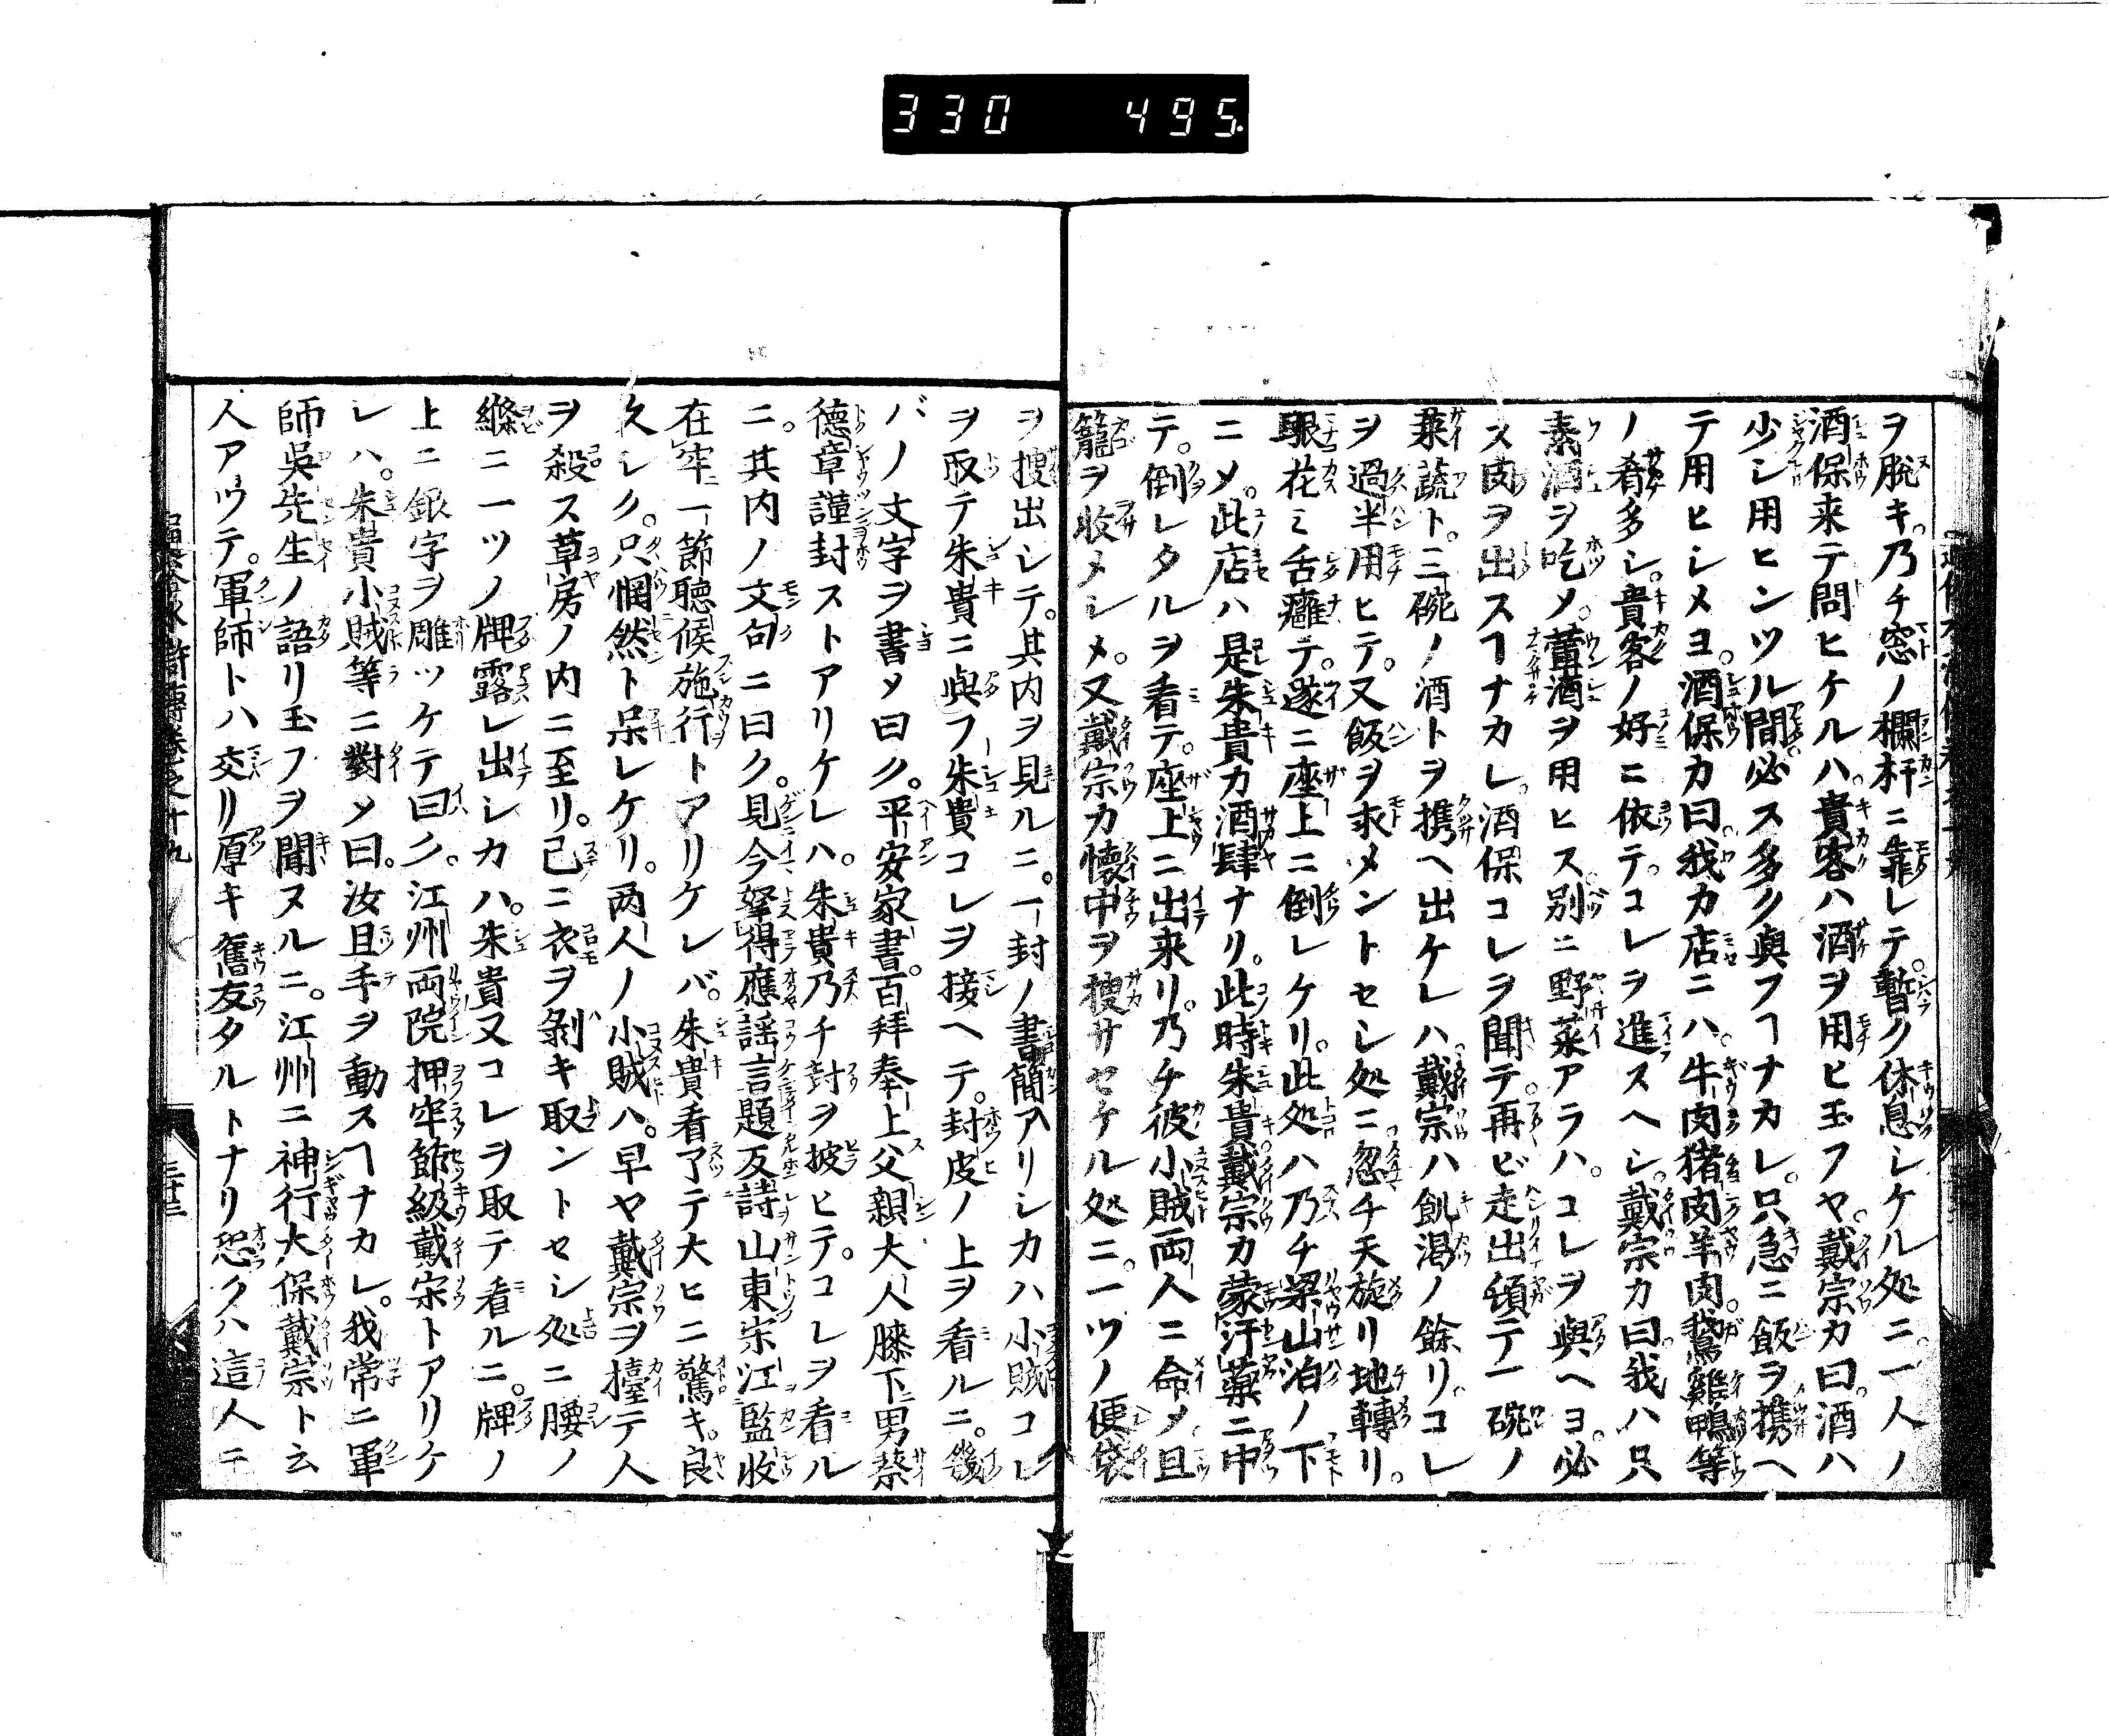 330 495
ヲ脱キ。乃チ窓ノ欄杆ニ靠レテ。暫ク休息シケル処ニ。一人ノ
酒保来テ問ヒケルハ。貴客ハ酒ヲ用ヒ玉フヤ。戴宗カ曰。酒ハ
少シ用ヒンツル間。必ス多ク與フヿナカレ。只急ニ飯ヲ携ヘ
テ用ヒシメヨ。酒保カ曰。我カ店ニハ。牛肉猪肉羊肉。鵞雞鴨等
ノ肴多シ。貴客ノ好ニ依テ。コレヲ進スヘシ。戴宗カ曰。我ハ只
素酒ヲ吃メ。葷酒ヲ用ヒス。別ニ野菜アラハ。コレヲ與ヘヨ。必
ス肉ヲ出スヿナカレ。酒保コレヲ聞テ。再ビ走出頃テ一碗ノ
菜蔬ト。三碗ノ酒トヲ携ヘ出ケレハ。戴宗ハ飢渇ノ餘リ。コレ
ヲ過半用ヒテ。又飯ヲ求メントセシ処ニ。忽チ天旋リ地轉リ。
眼花ミ舌癱テ。遂ニ座上ニ倒レケリ。此処ハ乃チ梁山泊ノ下
ニメ。此店ハ是朱貴カ酒肆ナリ。此時朱貴戴宗カ蒙汗藥ニ中
テ。倒レタルヲ看テ。座上ニ出来リ。乃チ彼小賊両人ニ命メ。且
籠ヲ收メシメ。又戴宗カ懐中ヲ搜サセケル処ニ。一ツノ便袋
ヲ搜出シテ。其内ヲ見ルニ。一封ノ書簡アリシカハ小賊コレ
ヲ取テ朱貴ニ與フ朱貴コレヲ接ヘテ。封皮ノ上ヲ看ルニ。幾
バノ文字ヲ書メ曰ク。平安家書。百拜奉上父親大人膝下男蔡
德章謹封ストアリケレハ。朱貴乃チ封ヲ披ヒテ。コレヲ看ル
ニ。其内ノ文句ニ曰ク。見今拏得應謡言題反詩山東宋江監收
在牢一節聽候施行トアリケレバ。朱貴看了テ大ヒニ驚キ。良
久レク。只惘然ト呆レケリ。两人ノ小賊ハ。早ヤ戴宗ヲ擡テ人
ヲ殺ス草房ノ内ニ至リ。已ニ衣ヲ剝キ取ントセシ処ニ腰ノ
縧ニ一ツノ牌露レ出シカハ。朱貴又コレヲ取テ看ルニ。牌ノ
上ニ銀字ヲ雕ツケテ曰ク。江州両院押牢節級戴宗トアリケ
レハ。朱貴小賊等ニ對メ曰。汝且手ヲ動スヿナカレ。我常ニ軍
師吳先生ノ語リ玉フヲ聞ヌルニ。江州ニ神行大保戴宗ト云
人アツテ。軍師トハ交リ厚キ舊友タルトナリ恐クハ這人ニ